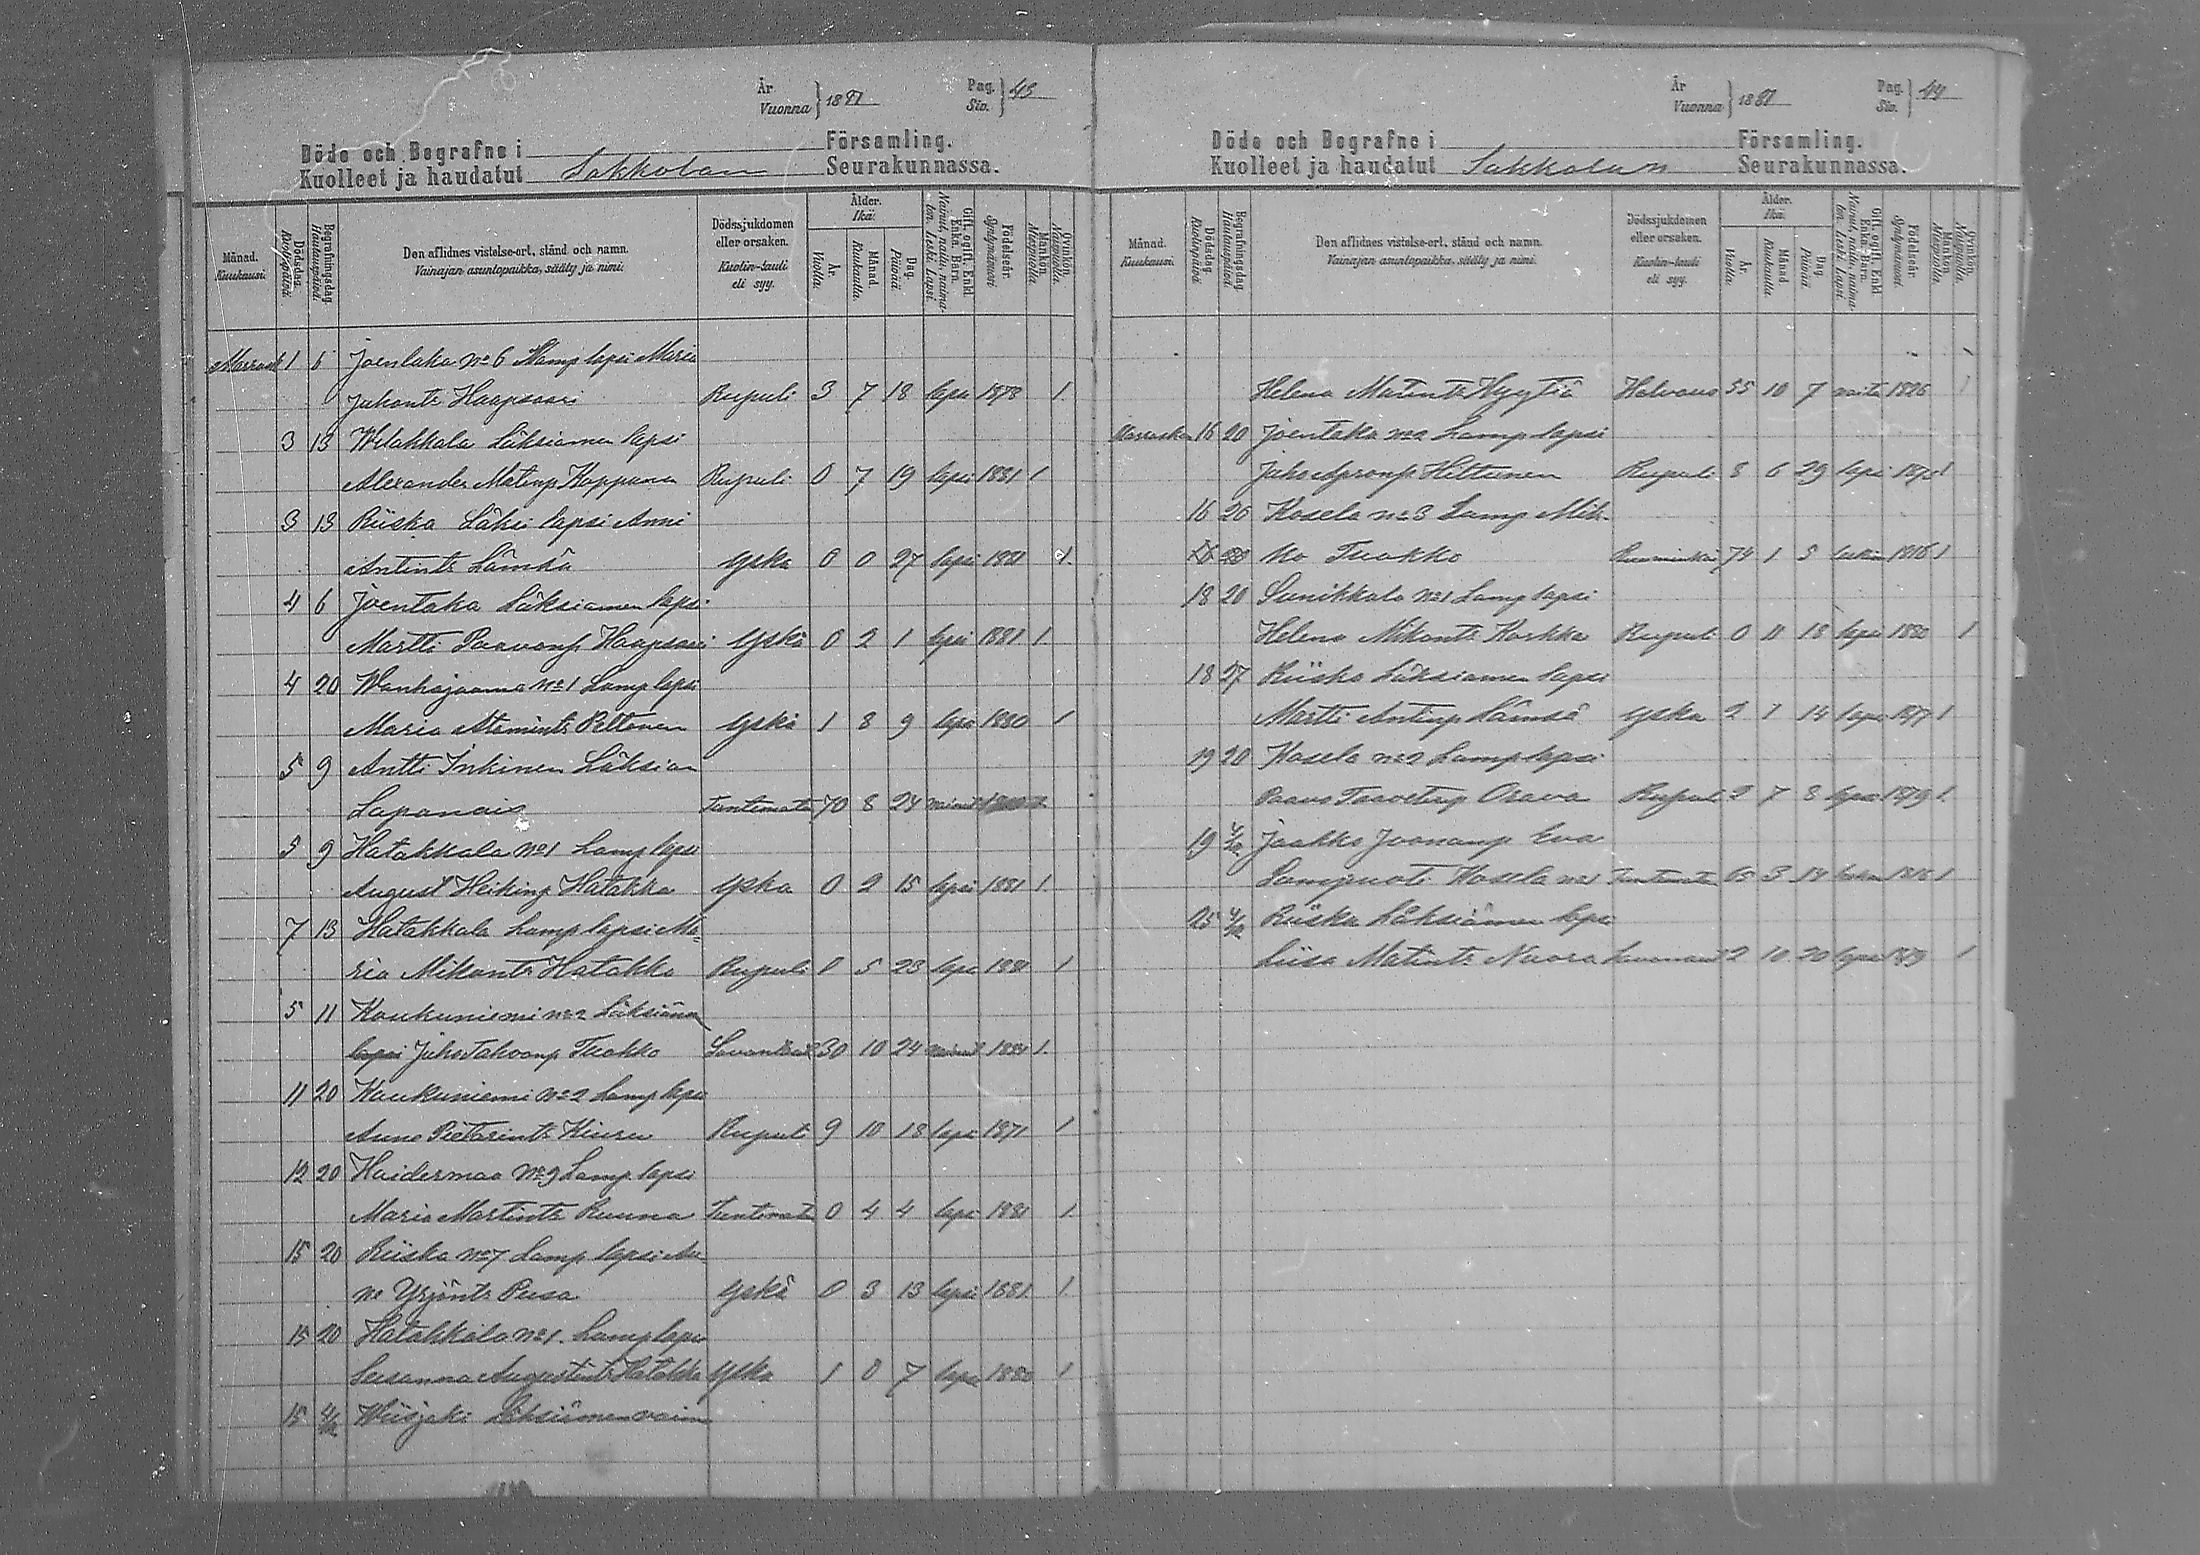 År
Vuonna } 1881
Pag.
Siv. } 43
Döde och Begrafne i Församling.
Kuolleet ja haudatut Sakkolan Seurakunnassa.
Månad. Kuukausi.
Dödsdag. Kuolinpäivä.
Begrafningsdag. Hautauspäivä.
Den aflidnes vistelse-ort, stånd och namn.
Vainajan asuntopaikka, sääty ja nimi.
Dödssjukdomen eller orsaken.
Kuolin-tauti eli syy.
Ålder. Ikä.
År. Vuotta.
Månad. Kuukautta.
Dag. Päivää.
Gift, ogift, Enkl. Enka, Barn.
Nainut, naitu, naimaton. Leski. Lapsi.
Födelseår. Syntymävuosi.
Mankön. Miespuolia.
Qvinkön. Naispuolia.
Marrask 1 6 Joentaka No 6 Lamp lapsi Maria
Juhontr Haapsaari Rupuli 3 7 18 lapsi 1878 1.
3 13 Läksiämen lapsi
Alexander Matinp Kappana Rupuli 0 7 19 lapsi 1881 1
3 13 Riiska Läksi lapsi Anni
Antintr Lämsä Yskä 0 0 27 lapsi 1881 1.
4 6 Joentaka Läksiämen lapsi
Martti Paavonp Haapsaari Yskä 0 2 1 lapsi 1881 1.
4 20 Wanhajaama No 1 Lamp lapsi
Maria Atamintr Peltonen Yskä 1 8 9 lapsi 1880 1
5 9 Antti Inkinen Läksiän
Lapanais Tuntematon 70 8 24
5 9 Hatakkala No 1 Lamp lapsi
August Heikinp Hatakka Yskä 0 2 15 lapsi 1881 1.
7 13 Hatakkala Lamp lapsi Ma-
ria Mikontr Hatakka Rupuli 0 5 23 lapsi 1881 1
5 11 Koukuniemi No 2 Läksiäm
lapsi Juho Tahvanp Tuokko 30 10 24 1851 1.
11 20 Koukuniemi No 2 Lamp lapsi
Anna Pietarintr Kiuru Rupuli 9 10 18 lapsi 1871 1
12 20 Haidermaa No 9 Lamp lapsi
Maria Martintr Ruuna Tuntematon 0 4 4 lapsi 1881 1
15 20 Riiska No 7 Lamp lapsi An-
na Yrjöntr Pusa Yskä 0 3 13 lapsi 1881 1.
15 20 Hatakkala No 1. Lamp lapsi
Susanna Augustintr Hatakka Yskä 1 0 7 lapsi 1880 1
15 4/12 Wiisjoki Läksiämen vaim
År
Vuonna } 1881
Pag.
Siv. } 44
Döde och Begrafne i Församling.
Kuolleet ja haudatut Sakkolan Seurakunnassa.
Månad. Kuukausi.
Dödsdag. Kuolinpäivä.
Begrafningsdag. Hautauspäivä.
Den aflidnes vistelse-ort, stånd och namn.
Vainajan asuntopaikka, sääty ja nimi.
Dödssjukdomen eller orsaken.
Kuolin-tauti eli syy.
Ålder. Ikä.
År. Vuotta.
Månad. Kuukautta.
Dag. Päivää.
Gift, ogift, Enkl. Enka, Barn.
Nainut, naitu, naimaton. Leski. Lapsi.
Födelseår. Syntymävuosi.
Mankön. Miespuolia.
Qvinkön. Naispuolia.
Helena Matintr Hyytiä Halvaus 55 10 7 naitu 1826 1
Marraskuu 16 20 Joentaka No 2 Lamp lapsi
Juho Apronp Hiltunen Rupuli 8 6 29 lapsi 1
16 26 Kosela No 3 Lamp Mik-
ko Tuokko 74 1 1
18 20 Sunikkala No 1 Lamp lapsi
Helena Mikontr Korkka Rupuli 0 11 18 lapsi 1880 1
18 27 Riiska Läksiämen lapsi
Martti Antinp Lämsä Yskä 2 14 lapsi 1
19 20 Kosela No 2 Lamp lapsi
Paavo Taavetinp Orava Rupuli 2 7 8 lapsi 1879 1.
19 4/12 Jaakko Joonanp Eva
Kosela Tuntematon 65 3 14 1
25 4/12 Riiska Läksiämen lapsi
Liisa Matintr Nuora 2 10 20 lapsi 1879 1